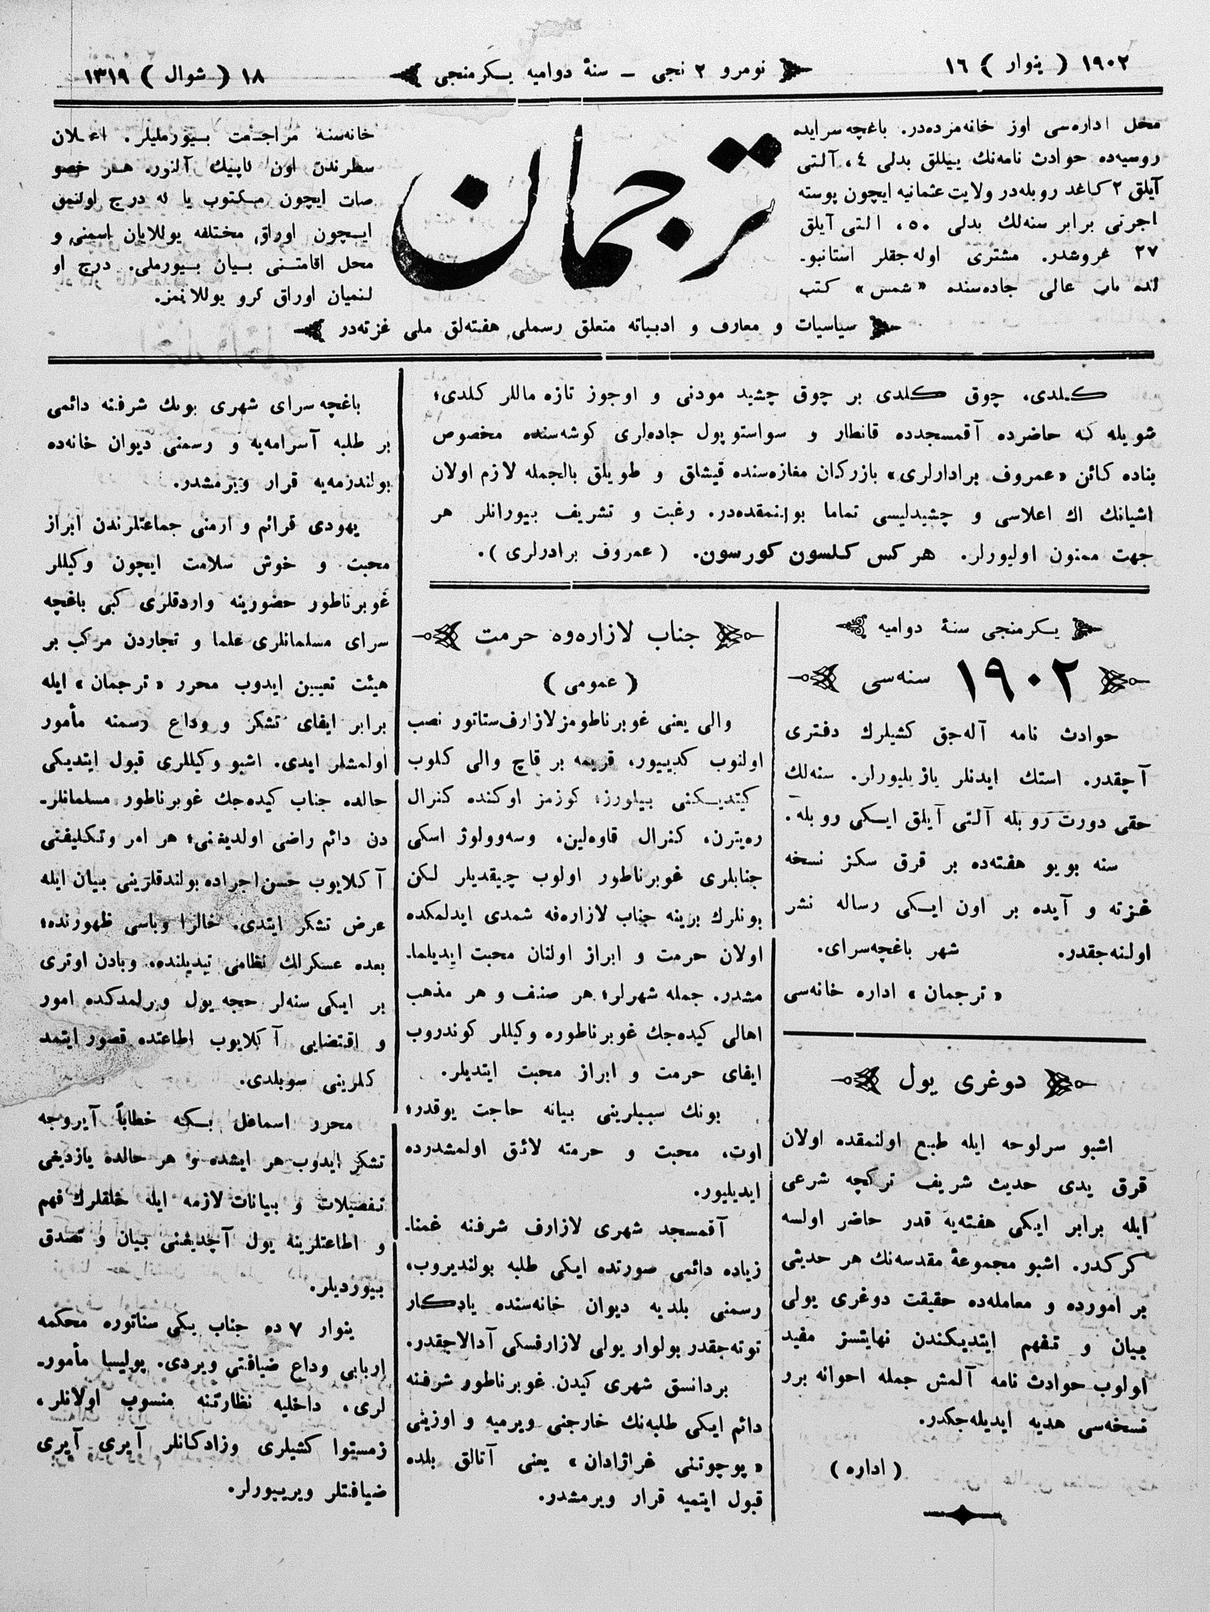 ١٩٠٢ ( ینوار ) ١٦
نومرو ٢ نجی ـ سنۀ دوامیه یـکرمنجی
١٨ ( شوال ) ١٣١٩
محل اداره‌سی اوز خانه‌مزده‌در. باغچه سرایده
روسیه‌ده حوادث نامه‌نك ییللق بدلی ٤، آلـتی
آیلق ٢ کاغد روبله‌در ولایت عثمانیه ایچون پوسته
اجرتی برابر سنه‌لك بدلی ٥٠، الـتی آیلق
٢٧ غروشدر. مشتری اوله‌جقلر استانبو۔
لده باب عالی جاده‌سنده «شمس» کتب
ترجمان
خانه‌سنه مراجـعت بـیورملیلر. اعـلان
سطرندن اون کاپیك آلنور. هـر خصو
صات ایچون مـکتوب یا که درج اولنمق
ایـچون اوراق مختلفه یوللایان اسمنی و
محل اقامتـنی بیان بـیورملی. درج او
لـنمیان اوراق کرو یوللانمز.
سیاسیات و معارف و ادبیاته متعلق رسملی هفته‌لق ملی غزته‌در
کـلدی. چوق کـلدی بر چوق چشید مودنی و اوجوز تازه ماللر کـلدی؛
شویله که حاضرده آقمسجدده قانطار و سواستوپول جاده‌لری کوشه‌سنده مخصوص
بناده کائن «عمروف برادارلری» بازرکان مغازه‌سنده قیشلق و طویلق بالجمله لازم اولان
اشیانك اك اعلاسی و چشیدلیسی تماما بولنمقده‌در. رغبت و تشریف بیورانلر هر
جهت ممنون اولیورلر. هر کس کـلسون کورسون. ( عمروف برادرلری ).
یـکرمنجی سنۀ دوامیه
١٩٠٢ سنه‌سی
حوادث نامه آله‌جق کشیلرك دفتری
آچقدر. استك ایدنلر یازیلیورلر. سنه‌لك
حقی دورت روبله آلـتی آیلق ایـکی روبله.
سنه بویو هفته‌ده بر قرق سکز نسخه
غـزته و آیده بر اون ایـکی رساله نشر
اولنه‌جقدر. شهر باغچه‌سرای.
« ترجمان » اداره خانه‌سی
دوغری یول
اشبو سرلوحه ایله طبع اولنمقده اولان
قرق یدی حدیث شریف ترکچه شرعی
ایله برابر ایکی هفته‌یه قدر حاضر اولسه
کرکدر. اشبو مجموعۀ مقدسه‌نك هر حدیثی
بر امورده و معامله‌ده حقیقت دوغری یولی
بیان و تـفهم ایتدیـکندن نهایتسز مفید
اولوب حوادث نامه آلمش جمله احوانه برر
نسخه‌سی هدیه ایدیله‌جکدر.
( اداره )
جناب لازاره‌وه حرمت
( عمومی )
والی یعنی غوبرناطومز لازارف ستاتور نصب
اولنوب کدییور، قریمه بر قاچ والی کلوب
کیتدیـکنی بیلورز؛ کوزمز اوکنده کنرال
ره‌یترن، کنرال قاوه‌لین، وسه‌وولوژ اسکی
جنابلری غوبرناطور اولوب چیقدیلر لکن
بونلرك برینه جناب لازاره‌فه شمدی ایدلمکده
اولان حرمت و ابراز اولنان محبت ایدیلما۔
مشدر. جمله شهرلر؛ هر صنف و هر مذهب
اهالی کیده‌جك غوبرناطوره وکیللر کوندروب
ایفای حرمت و ابراز محبت ایتدیلر.
بونك سببلرینی بیانه حاجت یوقدر؛
اوت، محبت و حرمته لائق اولمشدرده
ایدیلیور.
آقمسجد شهری لازارف شرفنه غمنا۔
زیاده دائمی صورتده ایکی طلبه بولندیروب،
رسمنی بلدیه دیوان خانه‌سنده یادکار
توته‌جقدر بولوار یولی لازارفسکی آدالاجقدر.
بردانسق شهری کیدن غوبرناطور شرفنه
دائم ایکی طلبه‌نك خارجنی ویرمیه و اوزینی
« پوچوتنی غراژادان » یعنی آتالق بلده
قبول ایتمیه قرار ویرمشدر.
باغچه سرای شهری بونك شرفنه دائمی
بر طلبه آسرامه‌یه و رسمنی دیوان خانه‌ده
بولندرمه‌یه قرار ویرمشدر.
یهودی قرائم و ارمنی جماعتلرندن ابراز
محبت و خوش سلامت ایچون وکیللر
غوبرناطور حضورینه واردقلری کبی باغچه
سرای مسلمانلری علما و تجاردن مرکب بر
هیئت تعیین ایدوب محرر « ترجمان » ایله
برابر ایفای تشکر و وداع رسمنه مأمور
اولمشلر ایدی. اشبو وکیللری قبول ایتدیکی
حالده جناب کیده‌جك غوبرناطور مسلمانلر۔
دن دائم راضی اولدیغنی؛ هر امر وتکلیفنی
آکلایوب حسن اجراده بولندقلرینی بیان ایله
عرض تشکر ایتدی. خالرا وباسی ظهورنده؛
بعده عسکرلك نظامی تبدیلنده، وبادن اوتری
بر ایـکی سنه‌لر حجه یول ویرلمدکده امور
و اقتضایی آکلایوب اطاعتده قصور ایتمد
کلرینی سویلدی.
محرر اسماعل بـکه خطاباً آیروجه
تشکر ایدوب هر ایشده و هر حالده یازدیغی
تـفصیلات و بیانات لازمه ایله خلقلرك فهم
و اطاعتلرینه یول آچدیغنی بیان و تصدق
بیوردیلر.
ینوار ٧ ده جناب یکی سناتوره محکمه
اربابی وداع ضیافتی ویردی. پولیسا مأمور۔
لری، داخلیه نظارتنه منسوب اولانلر،
زمستوا کشیلری وزادکانلر آیری آیری
ضیافتلر ویرییورلر.